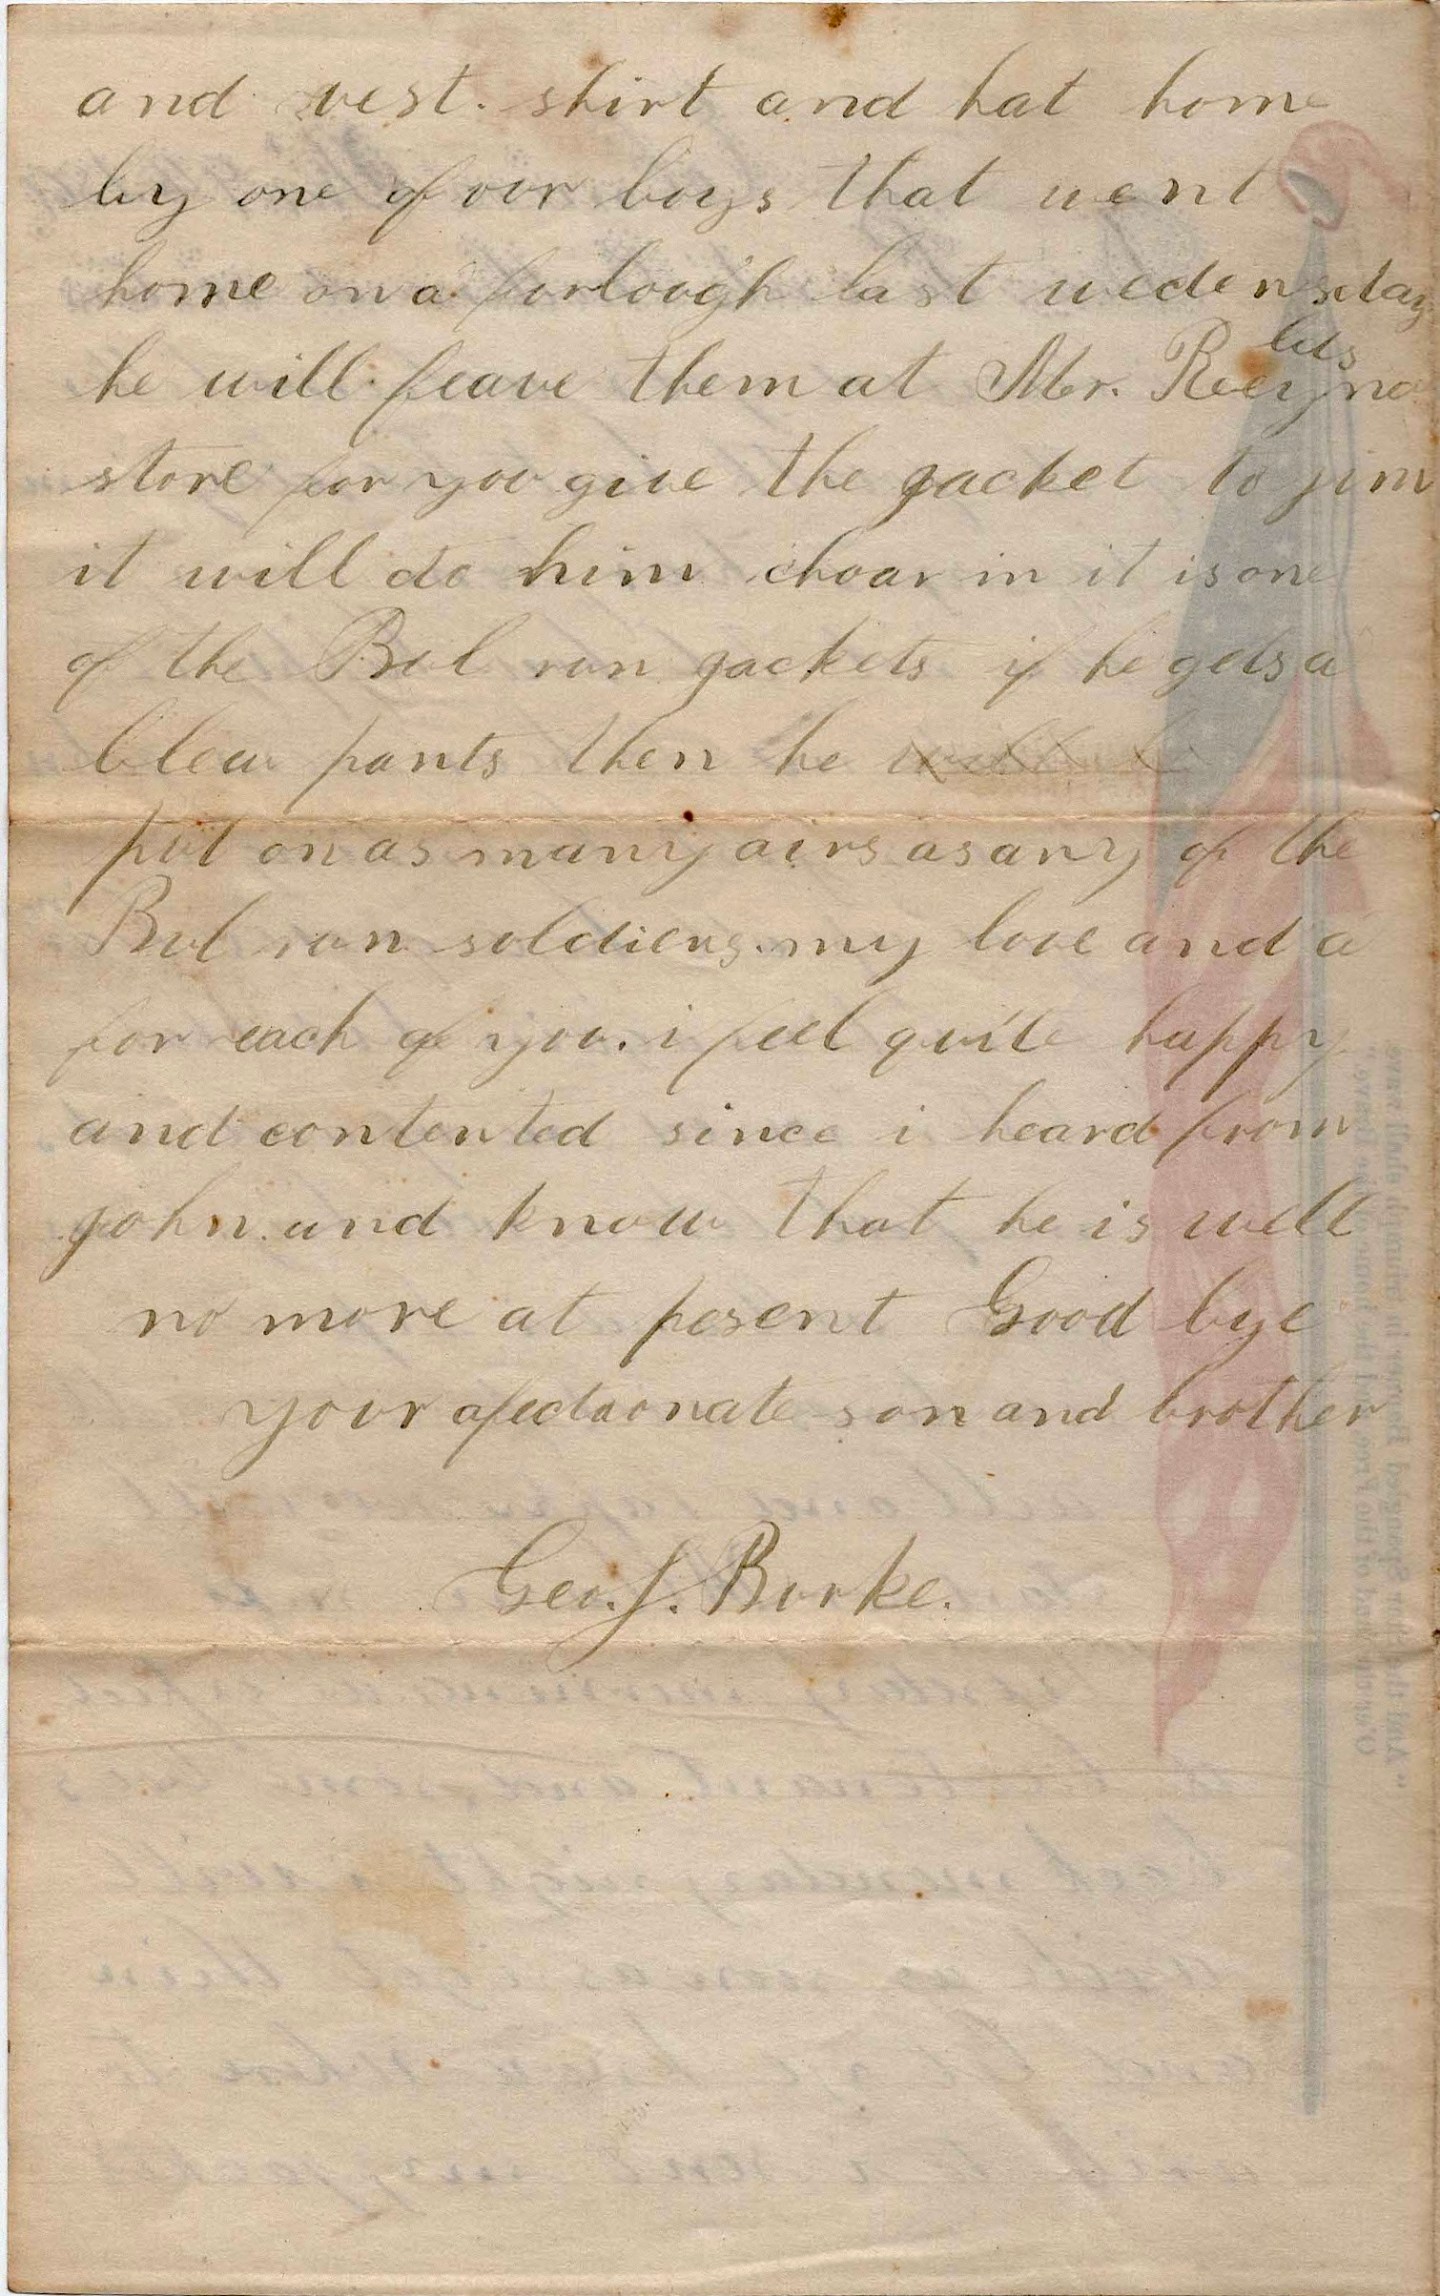 and vest. shirt and hat home
by one of our boys that went
home on a forlough last wedensday
he will leave them at Mr. Reeyno
lds
store for you give the jacket to jim
it will do him choar in it is one
of the Bul run jackets if he gets a
blew pants then he
put on as many airs as any of the
Bul run soldiers. my love and a
for each of you. i feel quite happy
and contented since i heard from
john. and know that he is well
no more at pesent Good bye
your afectionate son and brother
Geo. J. Burke.
"And the Star Spangled Banner in triumph shall wave
O'er the land of the Free and the home of the brave."